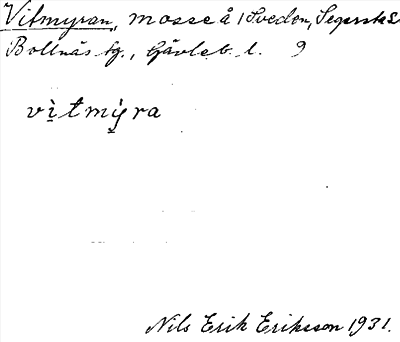 Vitmyran, mosse å 1 Sveden, Segersta s
Bollnäs tg., Gävleb. l. 9
vìtmỳ̱ra
Nils Erik Eriksson 1931.